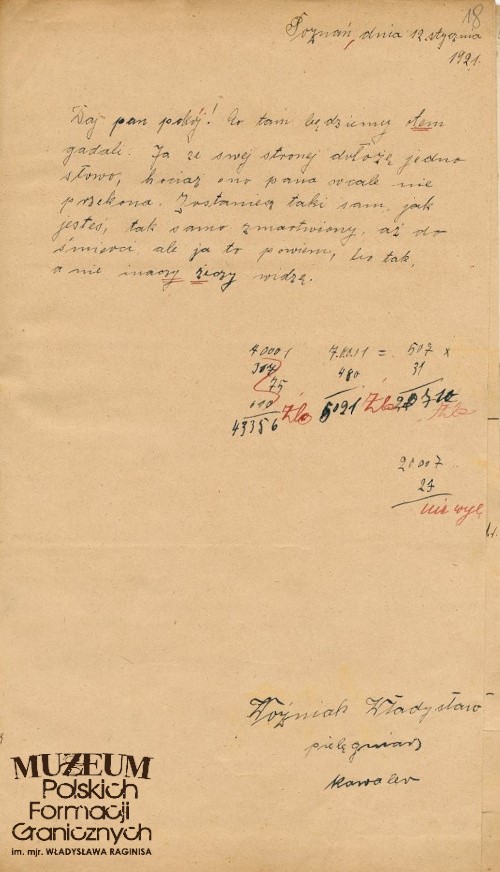 18
Poznań, dnia 12 stycznia
1921.
Daj pan pokój! Co tam będziemy otem
gadali. Ja ze swej stronej dołożę jedno
słowo, hociaż ono pana wcale nie
przekona. Zostaniesz taki sam, jak
jesteś, tak samo zmartwiony, aż do
śmierci ale ja to powiem, bo tak,
a nie inaczy rzeczy widzę.
40001 7.0.0.11 = 507 x
307 480 31
75 5091 Źle
010
43356 Źle
20007
23
nie
Woźniak Władysław
pielęgniarz
kawaler
MUZEUM
Polskich
Formacji
Granicznych
im. mjr. WŁADYSŁAWA RAGINISA